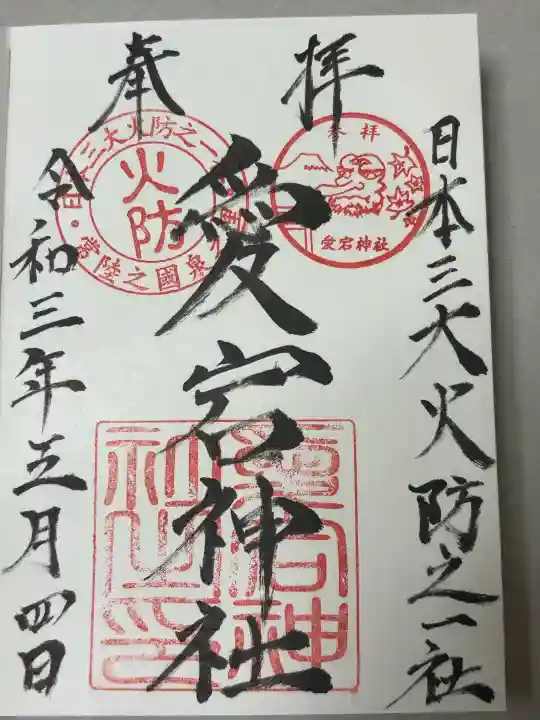 奉拝
日本三大火防之一社
愛宕神社
令和三年五月四日
参拝
愛宕神社
三大火防之一
火防
常陸之國泉
愛宕神
社之印